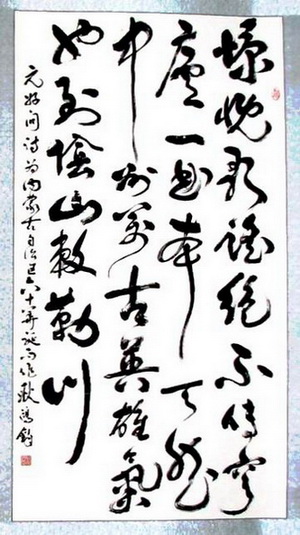 慷慨歌謠絕不傳穹
廬一曲本天然
中州萬古英雄氣
也到陰山敕勒川
元好问詩为内蒙古自治區六十華誕而作